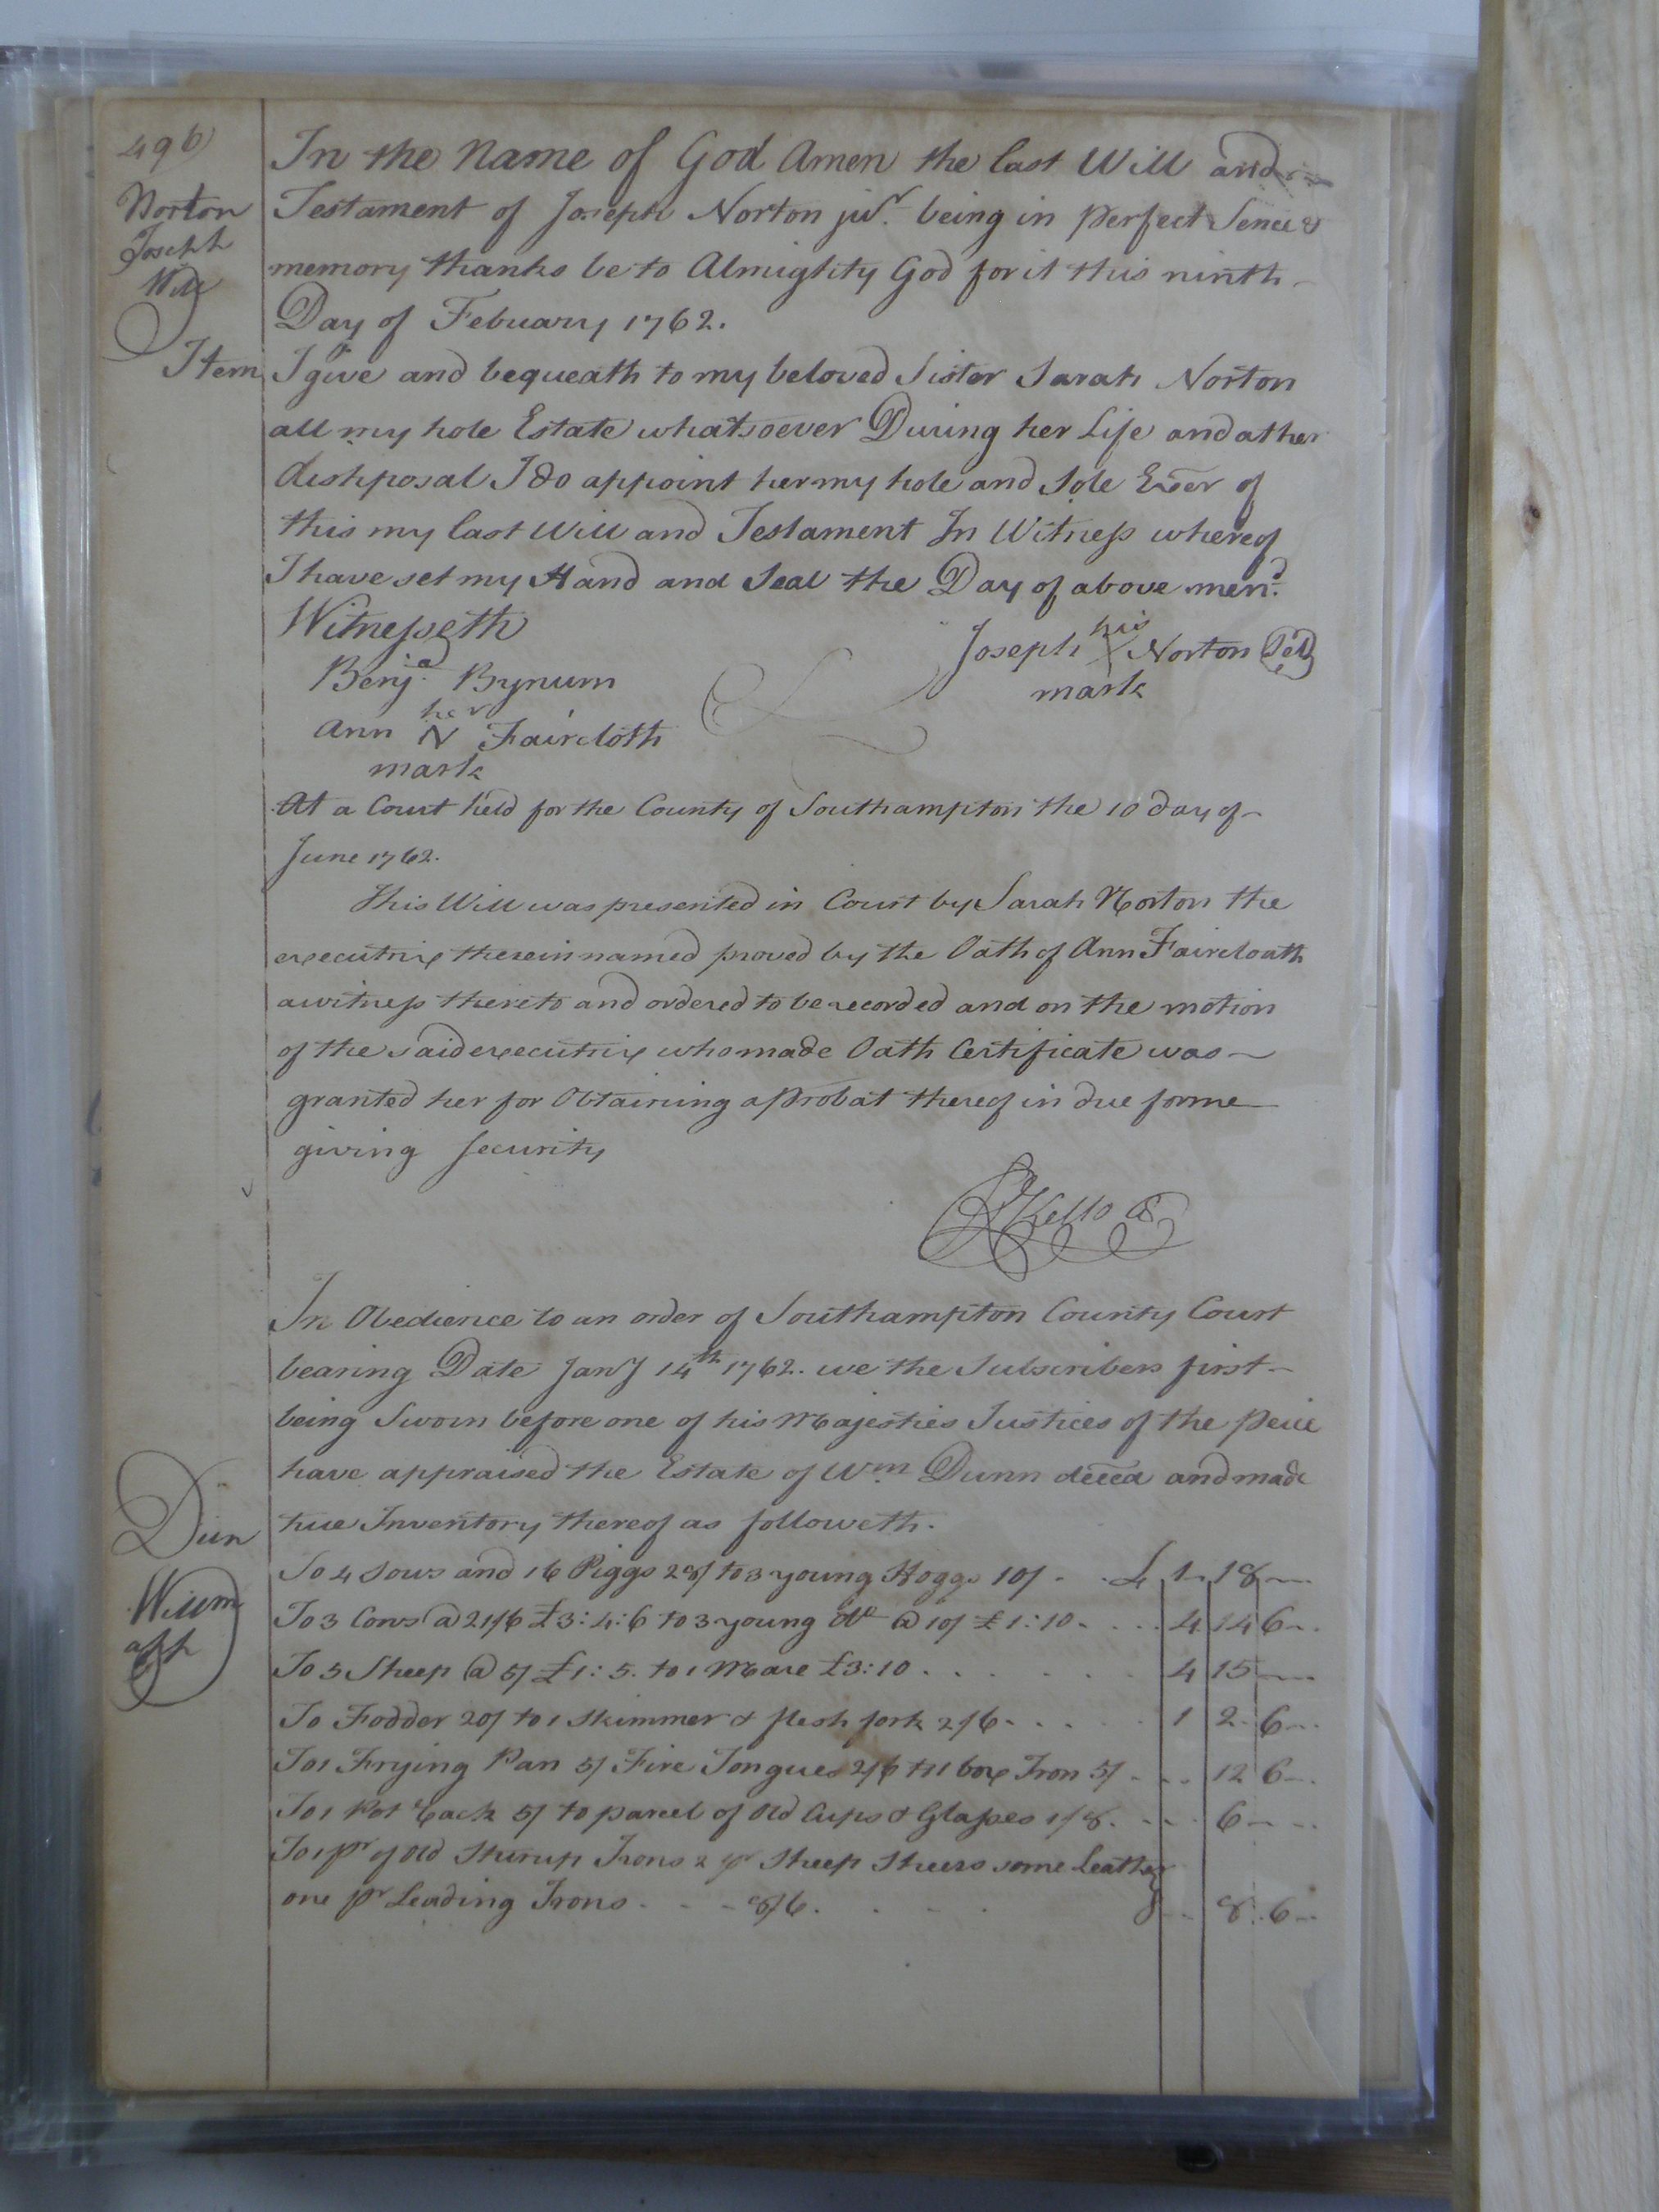 496
Norton
Joseph
Will
In the Name of God Amen the last Will and
Testament of Joseph Norton junr. being in perfect Sence &
memory thanks be to Almighty God for it this ninth
Day of Febuary 1762.
Item I give and bequeath to my beloved Sister Sarah Norton
all my hole Estate whatsoever During her Life and at her
dishposal I do appoint her my hole and Sole Exer of
this my last Will and Testament In Witness whereof
I have set my Hand and Seal the Day of above mend.
Witnesseth
Joseph his X Norton
mark
Benja. Bynum
her
Ann N Faircloth
mark
At a Court held for the County of Southampton the 10 day of
June 1762.
This Will was presented in Court by Sarah Norton the
executrix therein named proved by the Oath of Ann Faircloath
a witness thereto and ordered to be recorded and on the motion
of the said executrix who made Oath Certificate was
granted her for Obtaining a Probat thereof in due forme
giving Security
Kello
In Obedience to an order of Southampton County Court
bearing Date Jany 14th 1762. we the Subscribers first
being Sworn before one of his Majesties Justices of the peice
have appraised the Estate of Wm Dunn deced and made
true Inventory thereof as followeth.
Dun
Willm
To 4 Sows and 16 Piggs 28/ to 3 young Hoggs 10/ £ 1 18
To 3 Cows @ 21/6 £3:4:6 to 3 young do @ 10/ £1:10 4 14 6
To 5 Sheep @ 5/ £1:5. to 1 Mare £3:10 4 15
To Fodder 20/ to 1 skimmer & flesh fork 2/6 1 2 6
To 1 Frying Pan 5/ Fire Tongues 2/6 to 1 box Iron 5/ 12 6
To 1 Pot Rack 5/ to parcel of Old Cups & Glasses 1/8. 6
To 1 pr of Old Stirrup Irons 2 pr Sheep Sheers some Leather
one pr Leading Irons 8/6. 8 6